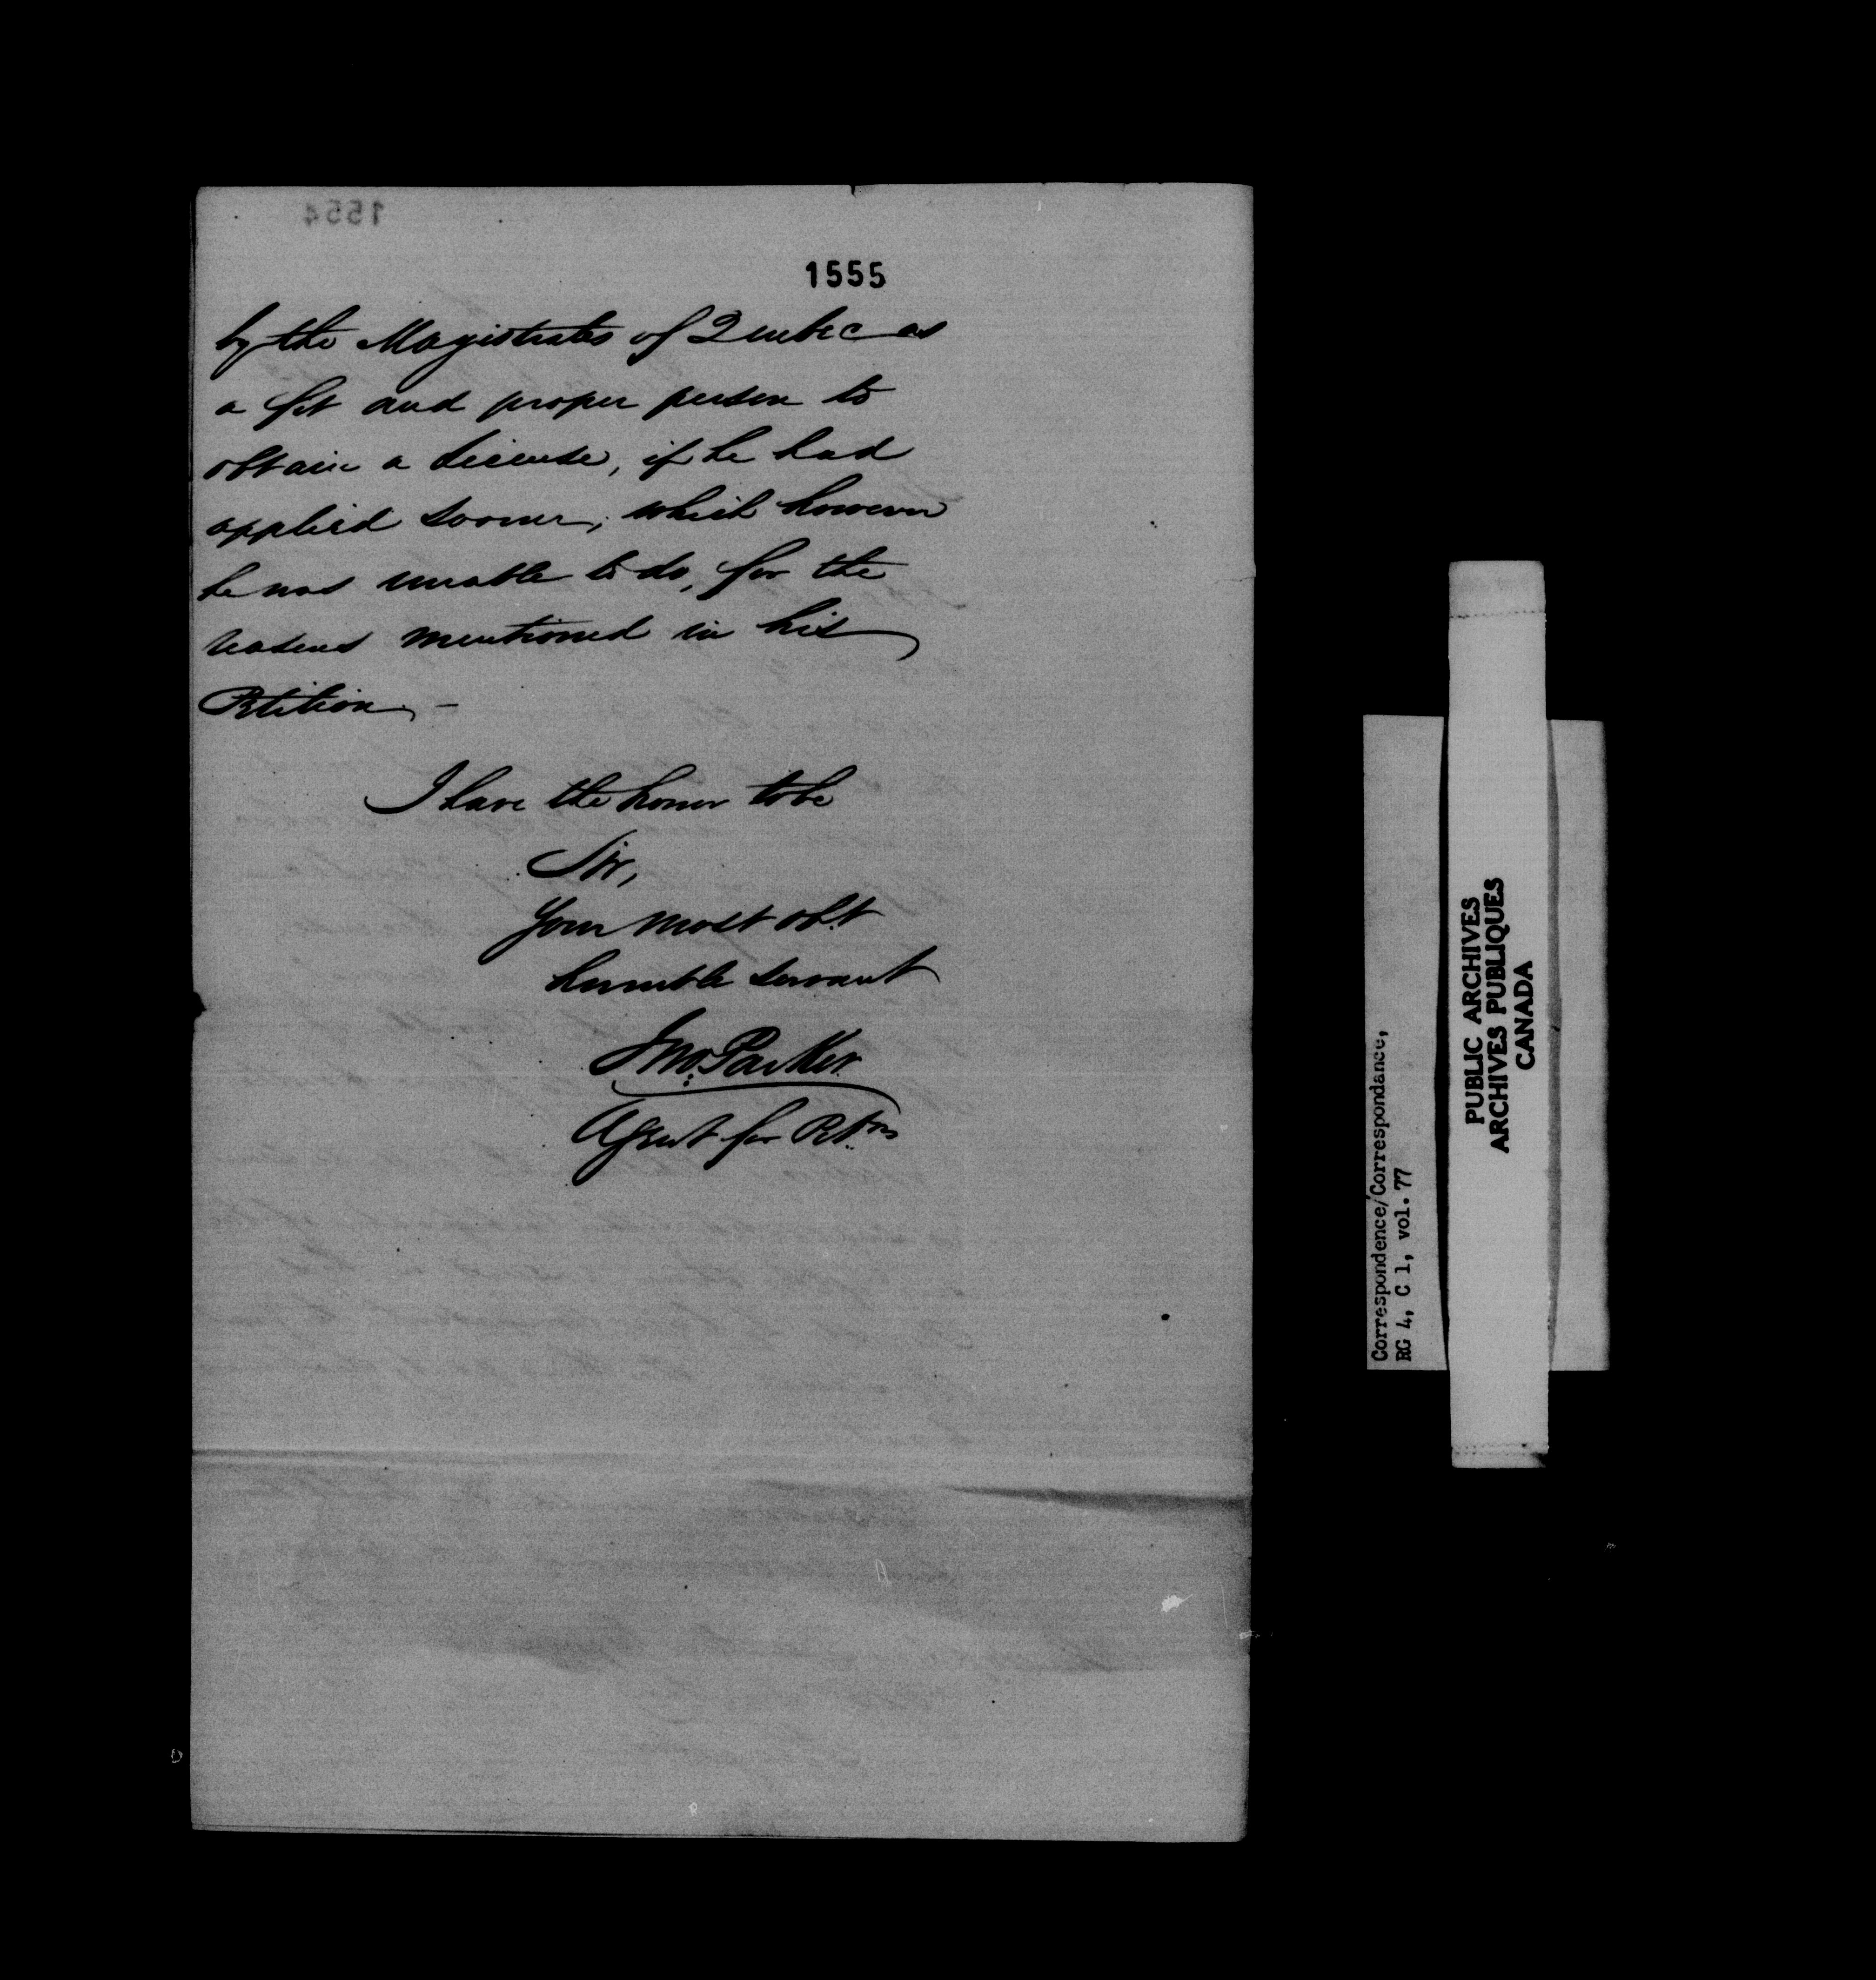 1554
1555
by the Magistrates of Quebec as
a fit and proper person to
obtain a License, if he had
applied sooner, which however
he was unable to do, for the
reasons mentioned in his
Petition. -
I have the honor to be
Sir,
Your most obt
humble servant
Jno. Parker
Agent for Petrs
Correspondence/Correspondance,
RG 4, C 1, vol. 77
PUBLIC ARCHIVES
ARCHIVES PUBLIQUES
CANADA